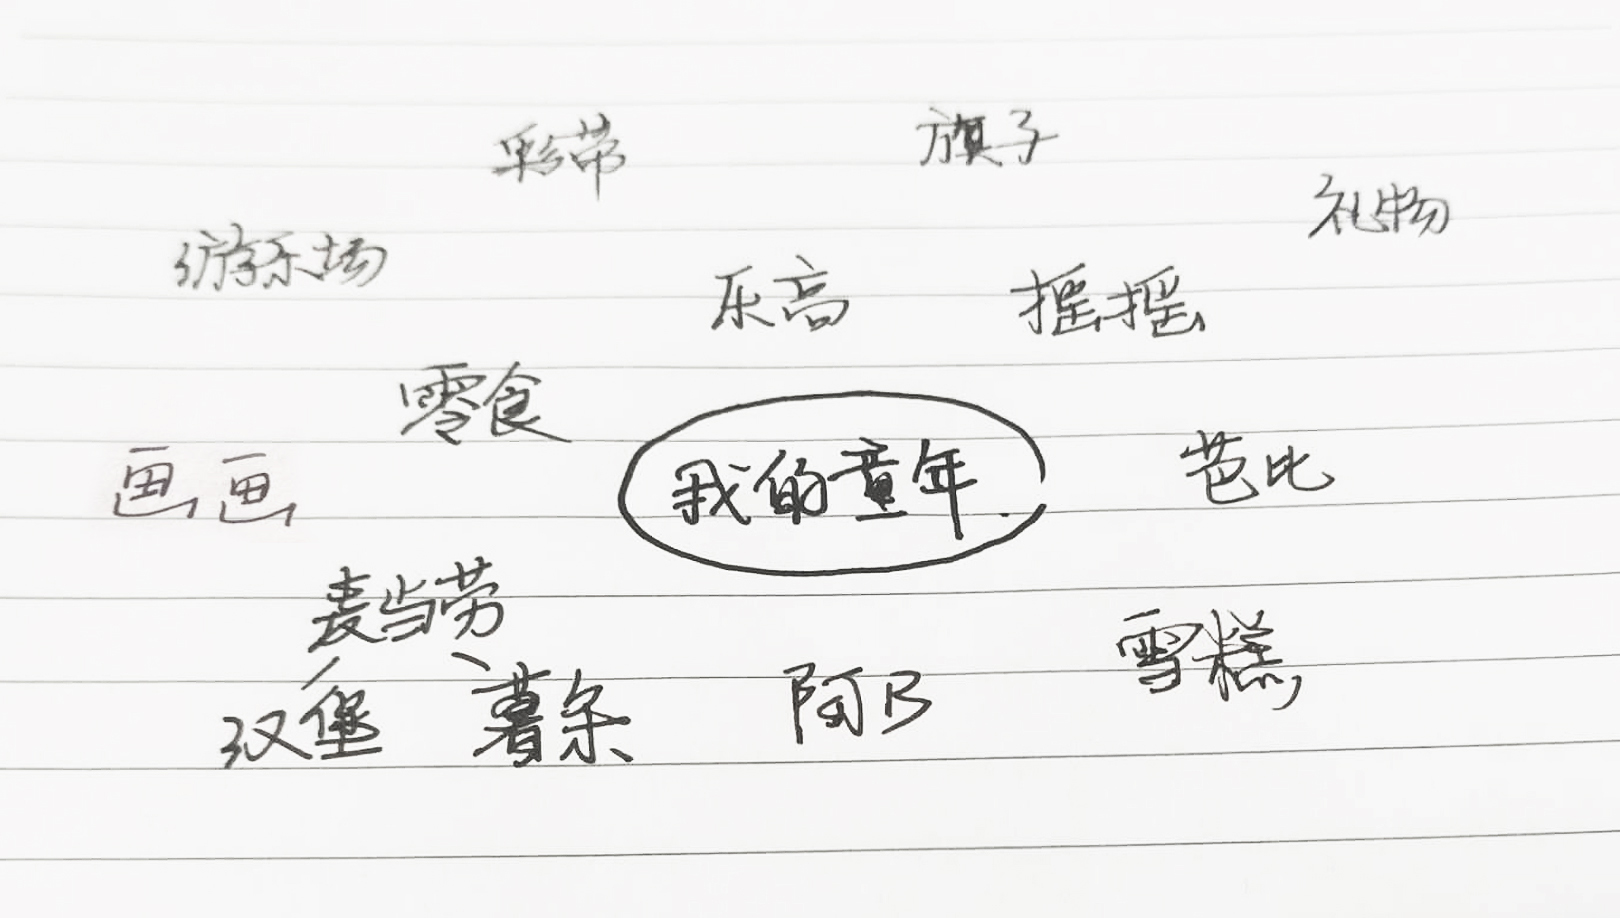 彩带
旗子
礼物
游乐场
乐高
摇摇
零食
画画
我的童年
芭比
麦当劳
雪糕
汉堡
薯条
阿B